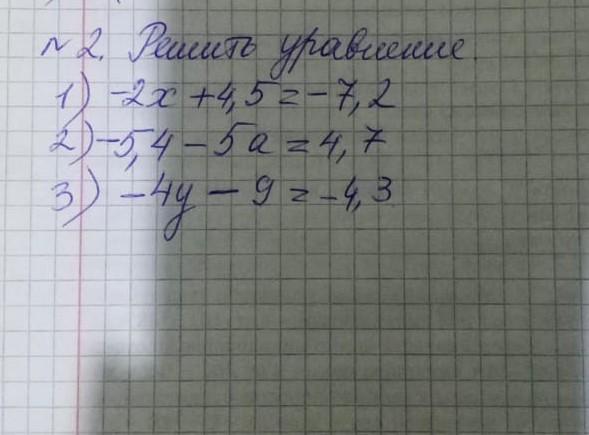 №2. Решить уравнение.
1) -2x + 4,5 = -7,2
2) -5,4 - 5a = 4,7
3) -4y - 9 = -4,3